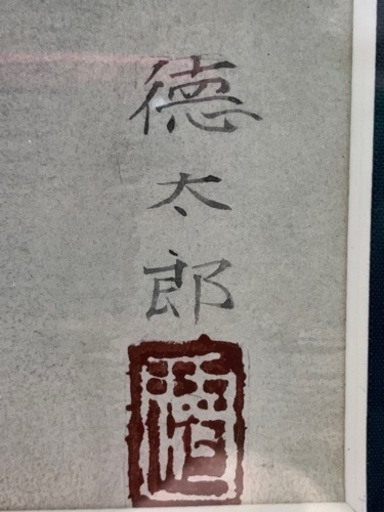 德太郎